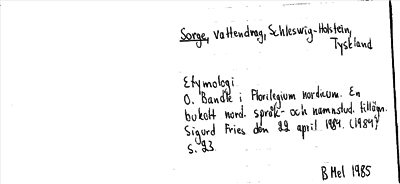 Sorge, vattendrag, Schleswig-Holstein,
Tyskland
Etymologi
O. Bandle i Florilegium nordicum. En
bukett nord. språk- och namnstud. tillägn.
Sigurd Fries den 22 april 1984. (1984)
S. 23.
B Hel 1985